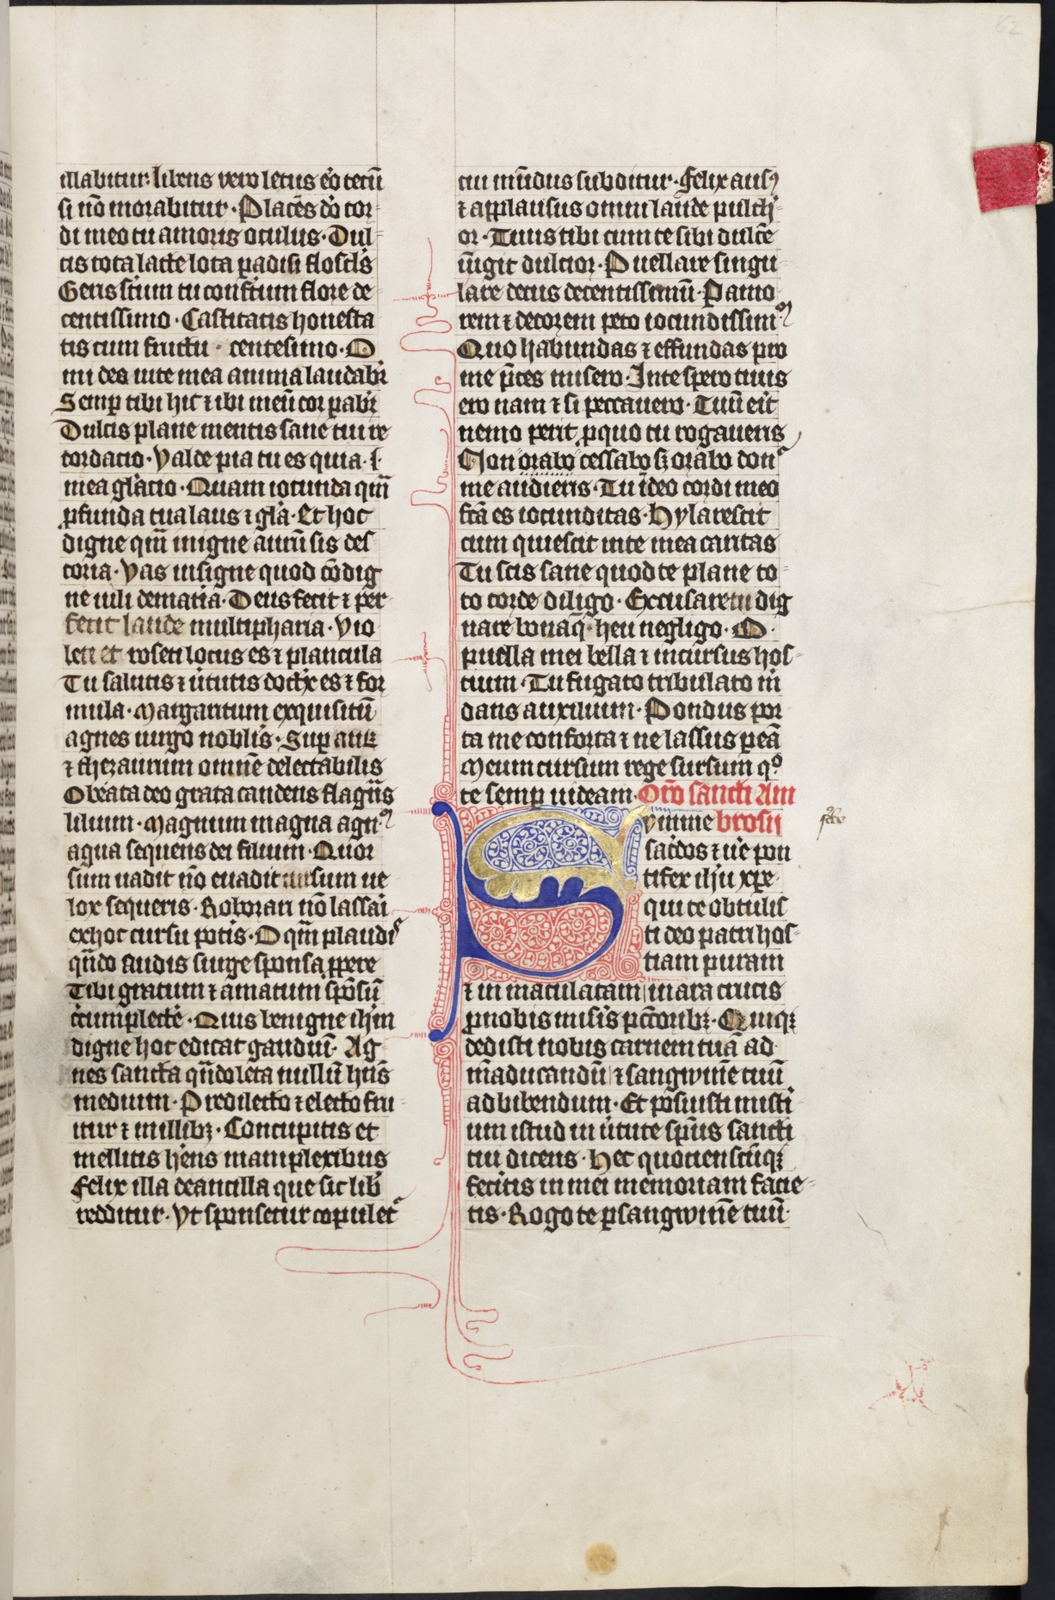 illabitur· libens vero letus eo tecū
si nō morabitur · Placēs dō cor-
di meo tu amoris oculus · Dul-
cis tota lacte lota padisi floscls
Geris stum tu conftum flore de
centissimo · Castitatis honesta
tis cum fructu · centesimo · O
mi dea vite mea anima laudabr̄
Semp tibi hic ⁊ ibi meū cor pabr̄
Dulcis plane mentis sane tui re
cordacio · Valde pia tu es quia ·
mea glācio · Quam iocunda qm̄
pfunda tua laus ⁊ gla · Et hoc
digne qm̄ insigne aurū sis des
coria · Vas insigne quod cōdig
ne vili dematia · Deus fecit ⁊ per
fecit laude multipharia · Vio
leti et roseti locus es ⁊ plancula
Tu salutis ⁊ ūtutis doctx es ⁊ for
mula · Margaritum exquisitū
agnes virgo noblis · Sup aur̄
⁊ thezaurum omnē delectabilis
O beata deo grata candens flagīis
lilium · Magnum magna agn
aqua sequens dei filium · Quor
sum vadit nō evadit sum ve
lox sequeris · Roborari nō lassari
ex hoc cursu potis · O qm̄ plaudis
qn̄do audis surge sponsa ppere
Tibi gratum ⁊ amatum spōsū
cumplecte · Quis benigne ihm
digne hoc edicat gaudiū · Ag
nes sancta qn̄do leta nullū htis
medium · Predilecto ⁊ electo fru
itur ⁊ millibz · Concupitis et
mellitis hēns manplexibus
Felix illa deancilla que sic lib
redditur · Vt sponsetur copulet
cui mūdus subditur · Felix ausꝰ
⁊ applausus omni laude pulch
or · Tuus tibi cum te sibi dulcē
iūgit dulcior · Puellare singu
lare decus decentissimū · P amo
rem ⁊ decorem peto iocundissimꝰ
Quo habundas ⁊ effundas pro
me pces misero · In te spero tuus
ero nam ⁊ si peccavero · Tuū erit
nemo perit pquo tu rogaveris
Non orabo cessabo sz orabo don
me audieris · Tu ideo cordi meo
fcā es iocunditas · Hylarescit
cum quiescit inte mea caritas
Tu scis sane quod te plane to-
to corde diligo · Excusare tu dig
nare bonaq · heu negligo · O ·
puella mei bella ⁊ incursus hos-
tium · Tu fugato tribulato m̄
dans auxilium · Pondus por
ta me conforta ⁊ ne lassus peā
Meum cursum rege sursum qº
te semp videam · Oro sancti Am
Summe brosii
sacdos ⁊ ve pon
tifex ihu xpe
qui te obtulis
ti deo patri hos-
tiam puram
⁊ in maculatam in ara crucis
p nobis misis pctoribz · Quiqz
dedisti nobis carnem tuā ad
māducandū ⁊ sangwinē tuū
ad bibendum · Et posuisti misti
um istud in ūtute spūs sancti
tui dicens · Hec quotienscūqz
fecitis in mei memoriam facie-
tis · Rogo te p sangwinē tuū